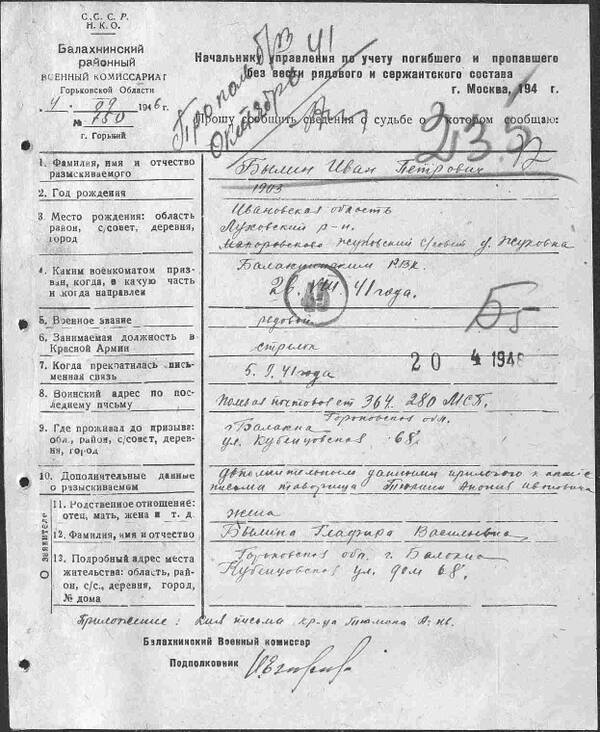 С. С. С. Р.
Н. К. О.
Балахнинский
районный
ВОЕННЫЙ КОМИССАРИАТ
Горьковской Области
4. 09 1946 г.
№ 750
г. Горький
Пропал б/в 41
Октябрь
Начальнику управления по учету погибшего и пропавшего
без вести рядового и сержантского состава
г. Москва, 194 г.
Прошу сообщить сведения о судьбе о котором сообщаю:
1. Фамилия, имя и отчество разыскиваемого
Былин Иван Петрович
2. Год рождения
1903
3. Место рождения: область район, с/совет, деревня, город
Ивановская область
Луховский р-н.
Жуковский с/совет д. Жуковка
4. Каким военкоматом призван, когда, в какую часть и когда направлен
РВК.
26. VIII. 41 года.
5. Военное звание
рядовой
6. Занимаемая должность в Красной Армии
стрелок
20 4 1948
7. Когда прекратилась письменная связь
41 года
8. Воинский адрес по последнему письму
Полевая 364. 280 МСП.
9. Где проживал до призыва: обл., район, с/совет, деревня, город
Горьковская обл.
г Балахна
ул. Кубенцовская 68.
10. Дополнительные данные о разыскиваемом
письма товарища
О заявителе
11. Родственное отношение: отец, мать, жена и т. д.
жена
12. Фамилия, имя и отчество
Былина Глафира Васильевна
13. Подробный адрес места жительства: область, район, с/с., деревня, город, № дома
Горьковская обл. г. Балахна
Кубенцовская ул. дом 68.
Приложение: письма
Балахнинский Военный комиссар
Подполковник